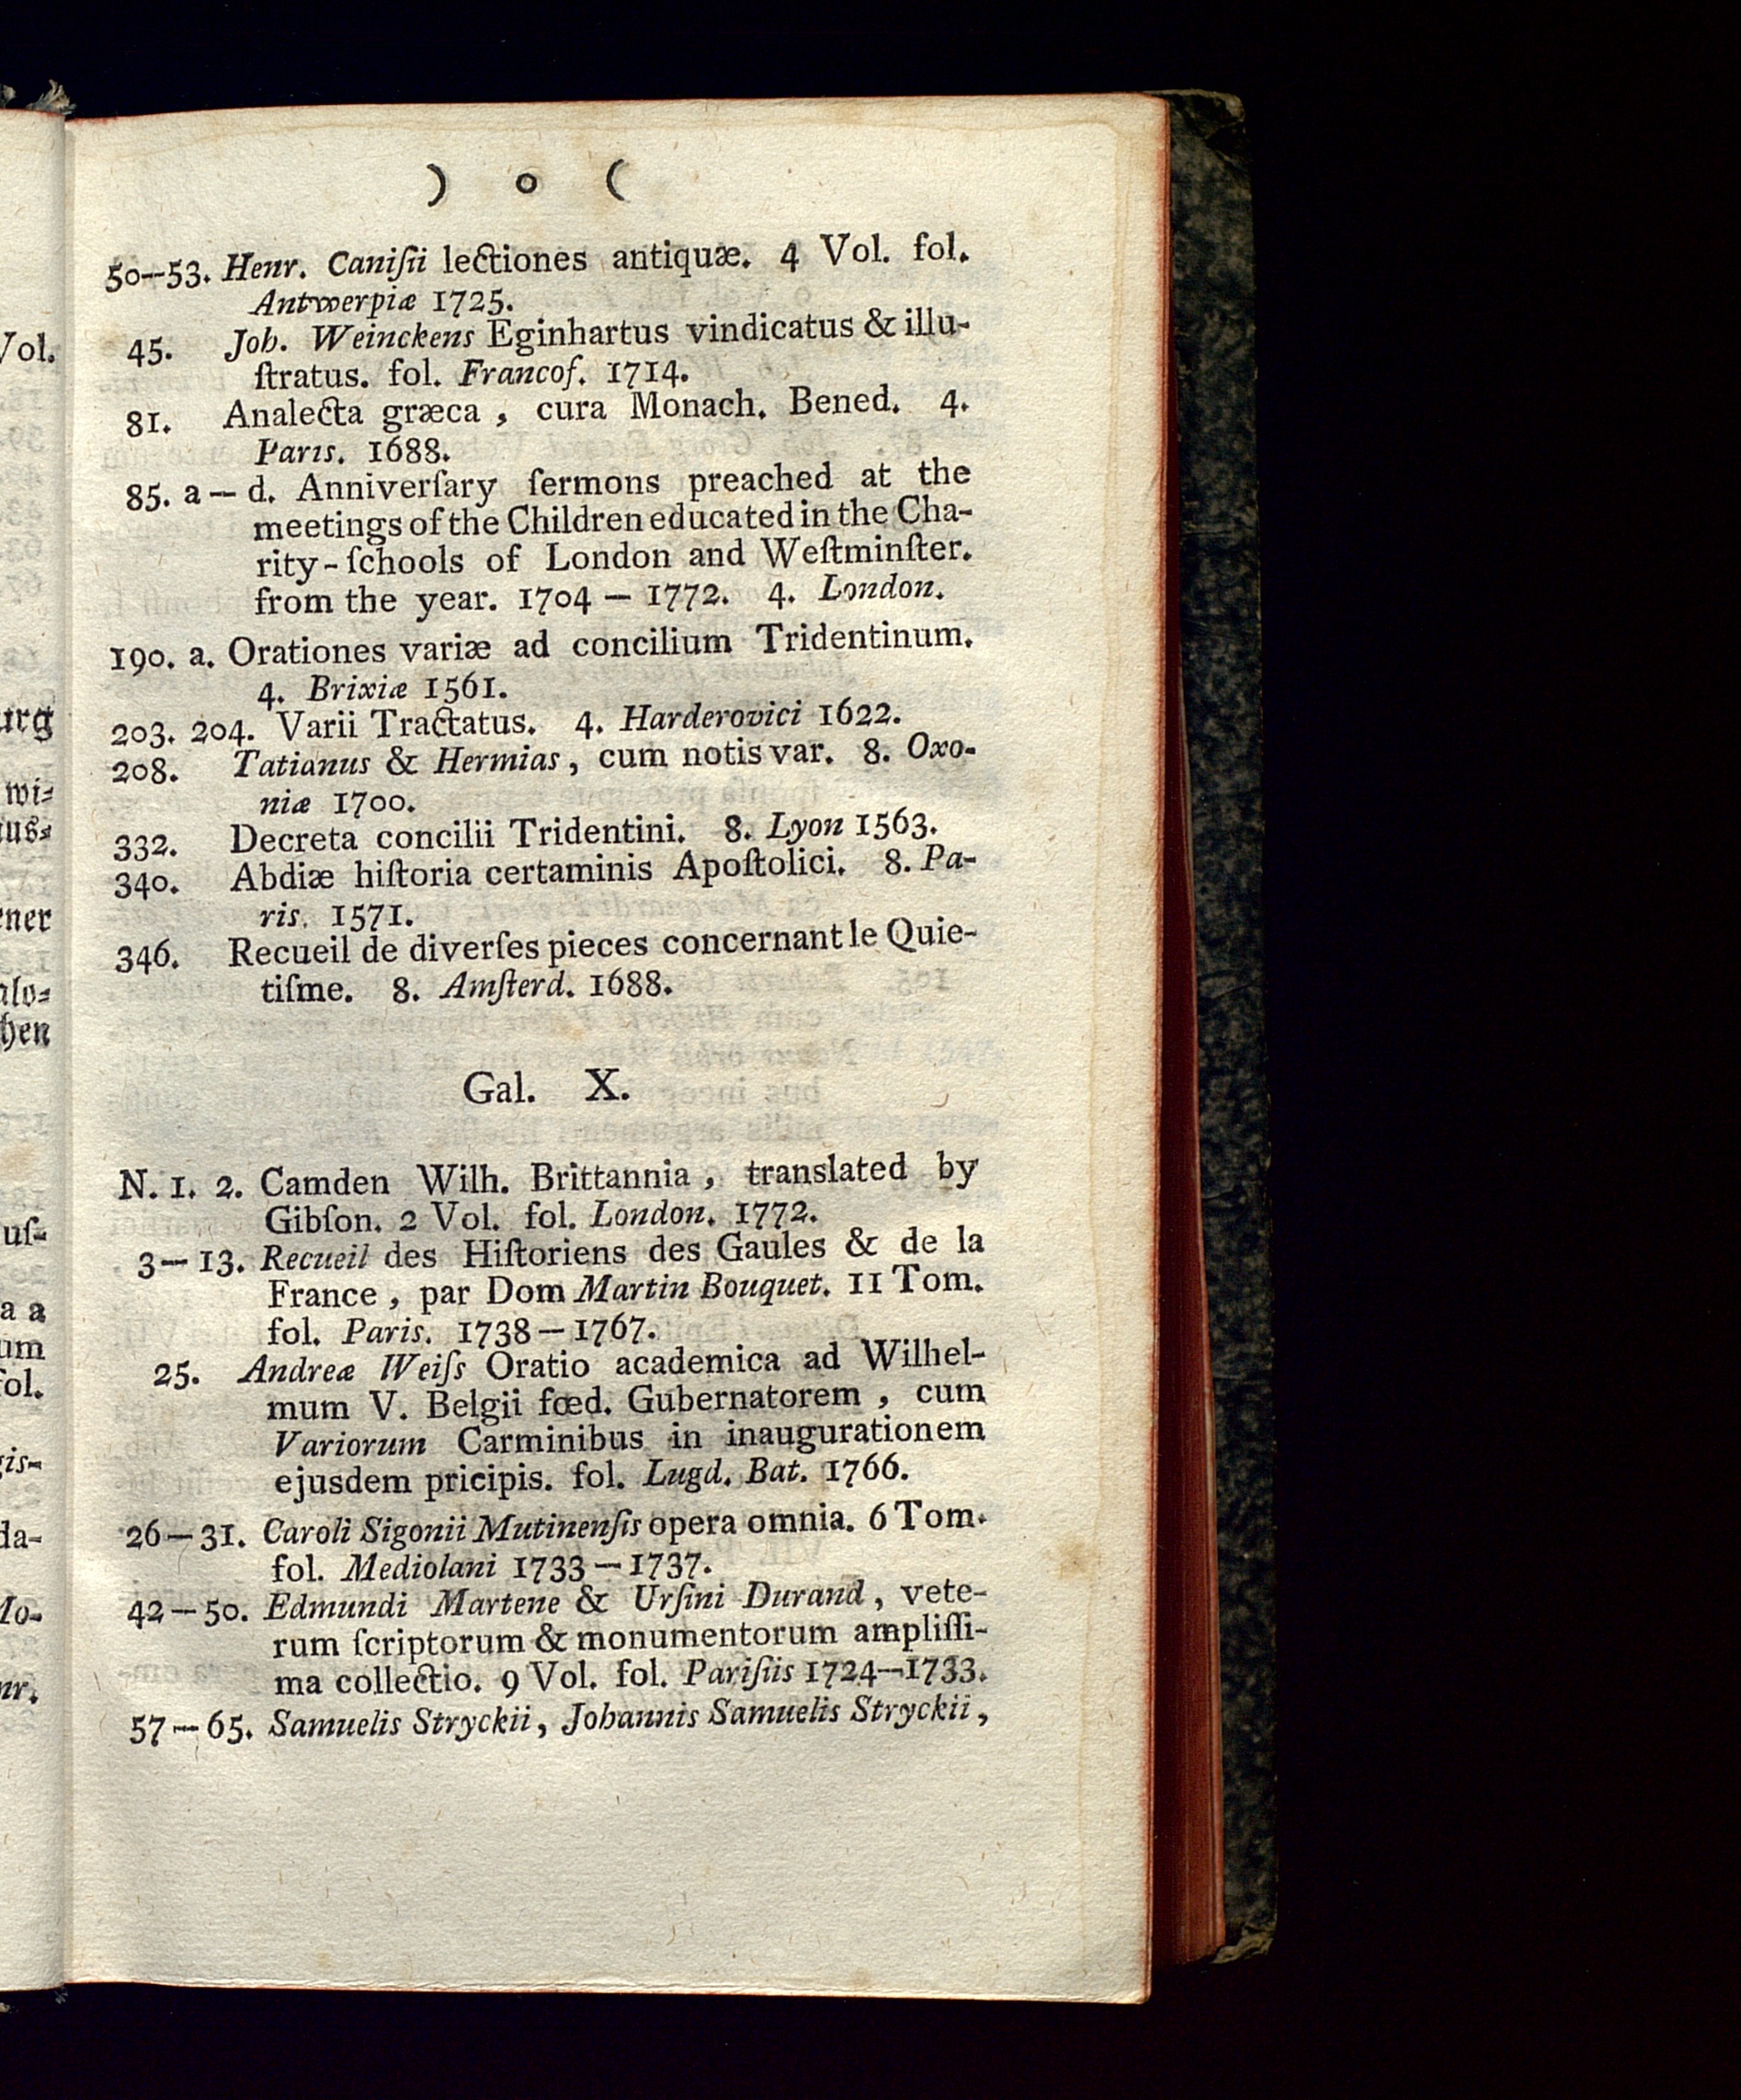 ) o (
50—53. Henr. Caniſii lectiones antiquæ. 4 Vol. fol.
Antwerpiæ 1725.
45. Joh. Weinckens Eginhartus vindicatus & illu-
ſtratus. fol. Francof. 1714.
81. Analecta græca, cura Monach. Bened. 4.
Paris. 1688.
85. a — d. Anniverſary ſermons preached at the
meetings of the Children educated in the Cha-
rity-ſchools of London and Weſtminſter.
from the year. 1704 — 1772. 4. London.
190. a. Orationes variæ ad concilium Tridentinum.
4. Brixiæ 1561.
203. 204. Varii Tractatus. 4. Harderovici 1622.
208. Tatianus & Hermias, cum notis var. 8. Oxo-
niæ 1700.
332. Decreta concilii Tridentini. 8. Lyon 1563.
340. Abdiæ hiſtoria certaminis Apoſtolici. 8. Pa-
ris. 1571.
346. Recueil de diverſes pieces concernant le Quie-
tiſme. 8. Amſterd. 1688.
Gal. X.
N. 1. 2. Camden Wilh. Brittannia, translated by
Gibſon. 2 Vol. fol. London. 1772.
3—13. Recueil des Hiſtoriens des Gaules & de la
France, par Dom Martin Bouquet. 11 Tom.
fol. Paris. 1738 — 1767.
25. Andreæ Weiſs Oratio academica ad Wilhel-
mum V. Belgii fœd. Gubernatorem, cum
Variorum Carminibus in inaugurationem
ejusdem pricipis. fol. Lugd. Bat. 1766.
26—31. Caroli Sigonii Mutinenſis opera omnia. 6 Tom.
fol. Mediolani 1733 — 1737.
42—50. Edmundi Martene & Urſini Durand, vete-
rum ſcriptorum & monumentorum ampliſſi-
ma collectio. 9 Vol. fol. Pariſiis 1724—1733.
57—65. Samuelis Stryckii, Johannis Samuelis Stryckii,